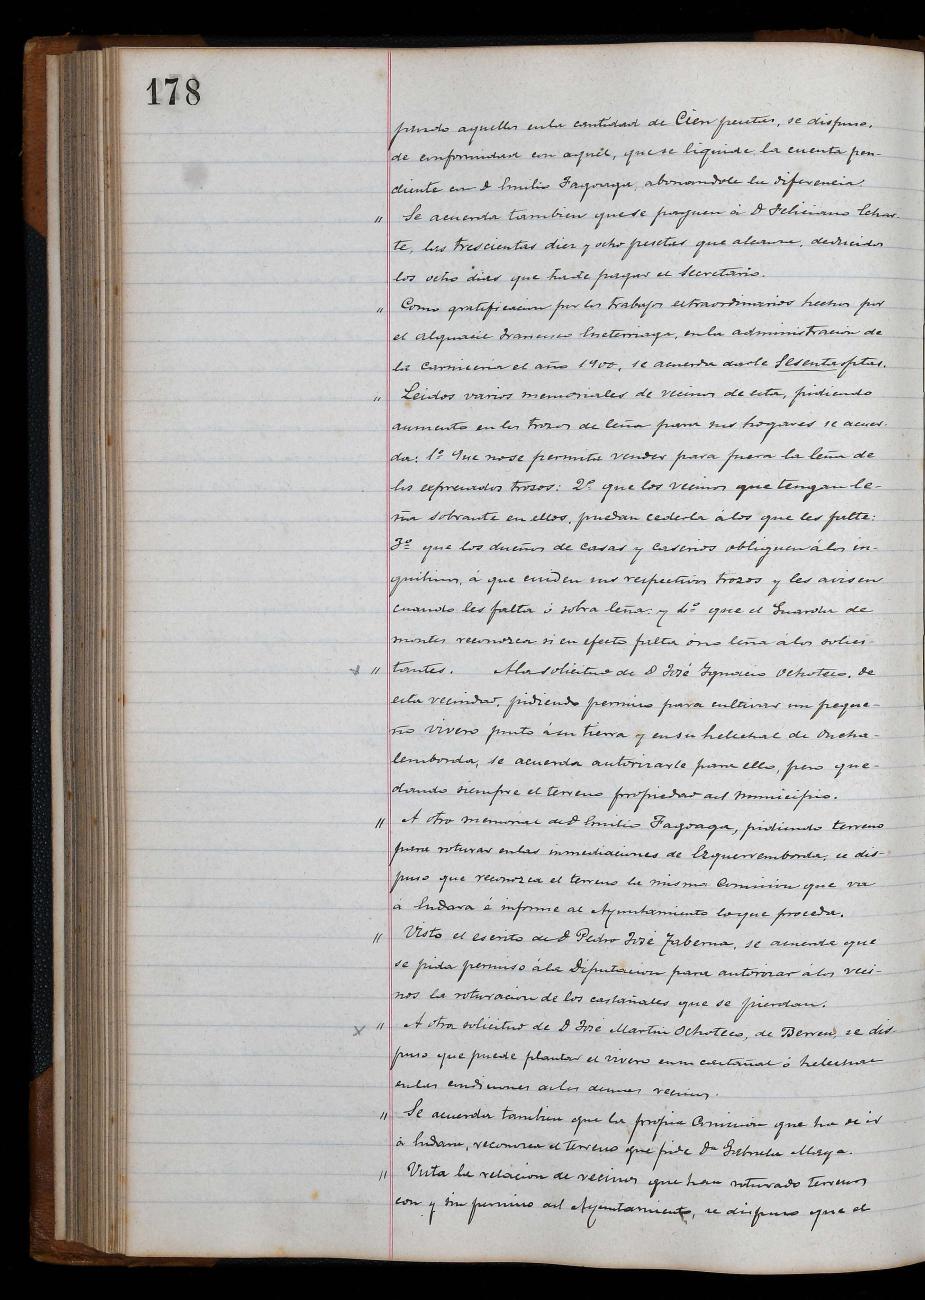 178
pando aquellos en la cantidad de Cien pesetas, se dispuso,
de conformidad con aquél, que se liquide la cuenta pen-
diente con D Emilio Fagoaga, abonandole la diferencia.
" Se acuerda tambien que se paguen á D Feliciano Echar-
te, las trescientas diez y ocho pesetas que alcanza, deducidos
los ocho dias que ha de pagar el Secretario.
" Como gratificacion por los trabajos extraordinarios hechos por
el alguacil Francisco en la administracion de
la Carniceria el año 1900, se acuerda darle Sesenta ptas.
" Leidos varios memoriales de vecinos de esta, pidiendo
aumento en los trozos de leña para sus hogares se acuer-
da: 1º Que no se permita vender para fuera la leña de
los expresados trozos: 2º que los vecinos que tengan le-
ña sobrante en ellos, puedan cederla á los que les falte:
3º que los dueños de casas y caserios obliguen á los in-
quilinos, á que cuiden sus respectivos trozos y les avisen
cuando les falta ó sobra leña: y 4º que el Guarda de
montes reconozca si en efecto falta ó no leña á los solici-
x " tantes. A la solicitud de D José Ignacio Ochoteco, de
esta vecindad, pidiendo permiso para cultivar un peque-
ño vivero junto á su tierra y en su helechal de Oncha-
lemborda, se acuerda autorizarle para ello, pero que-
dando siempre el terreno propiedad del Municipio.
" A otro memorial de D Emilio Fagoaga, pidiendo terreno
para roturar en las inmediaciones de Ezquerremborda, se dis-
puso que reconozca el terreno la misma Comision que va
á Endara é informe al Ayuntamiento lo que proceda.
" Visto el escrito de D Pedro José Taberna, se acuerda que
se pida permiso á la Diputacion para autorizar á los veci-
nos la roturacion de los castañales que se pierdan.
x " A otra solicitud de D José Martin Ochoteco, de Berreu, se dis-
puso que puede plantar el vivero en su castañal ó helechal
en las condiciones de los demas vecinos.
" Se acuerda tambien que la propia Comision que ha de ir
á Endara, reconozca el terreno que pide Dª Gabriela Maya.
" Vista la relacion de vecinos que han roturado terrenos
con y sin permiso del Ayuntamiento, se dispuso que el